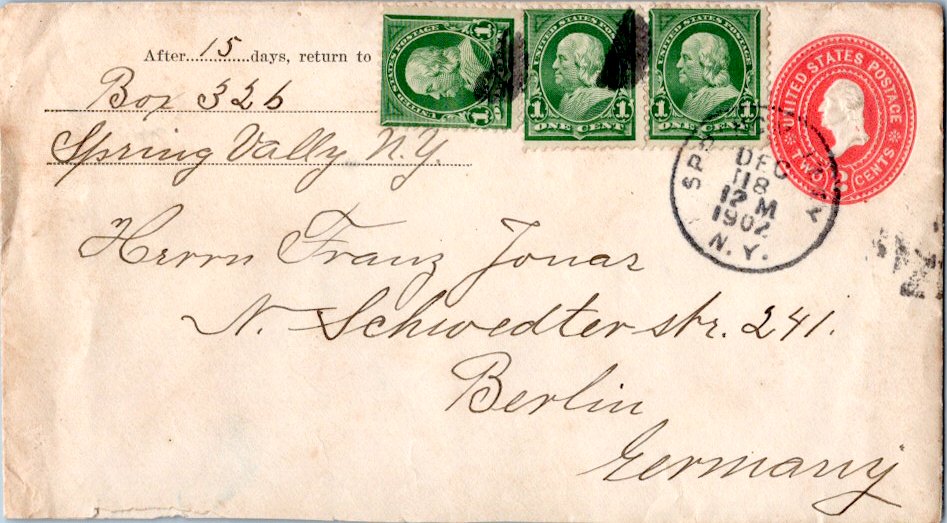 After 15 days, return to
Box 326
Spring Vally N.Y.
UNITED STATES POSTAGE
1 1
UNITED STATES POSTAGE
1 1
ONE CENT
UNITED STATES POSTAGE
1 1
ONE CENT
UNITED STATES POSTAGE
TWO 2 CENTS
DEC
18
12 M
1902
N.Y.
Herrn Franz Jonas
N. Schwedter str. 241.
Berlin
Germany